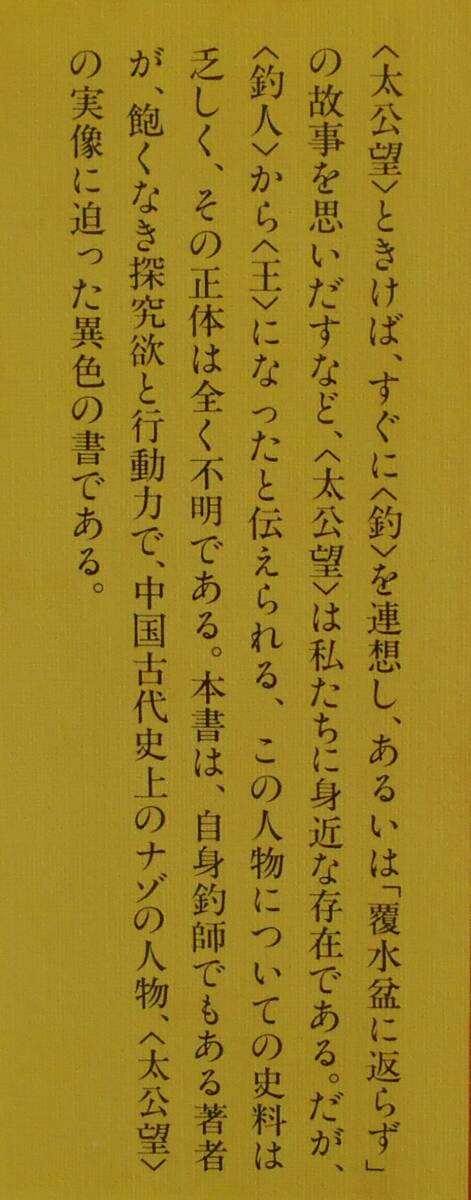 〈太公望〉ときけば、すぐに〈釣〉を連想し、あるいは「覆水盆に返らず」
の故事を思いだすなど、〈太公望〉は私たちに身近な存在である。だが、
〈釣人〉から〈王〉になったと伝えられる、この人物についての史料は
乏しく、その正体は全く不明である。本書は、自身釣師でもある著者
が、飽くなき探究欲と行動力で、中国古代史上のナゾの人物、〈太公望〉
の実像に迫った異色の書である。